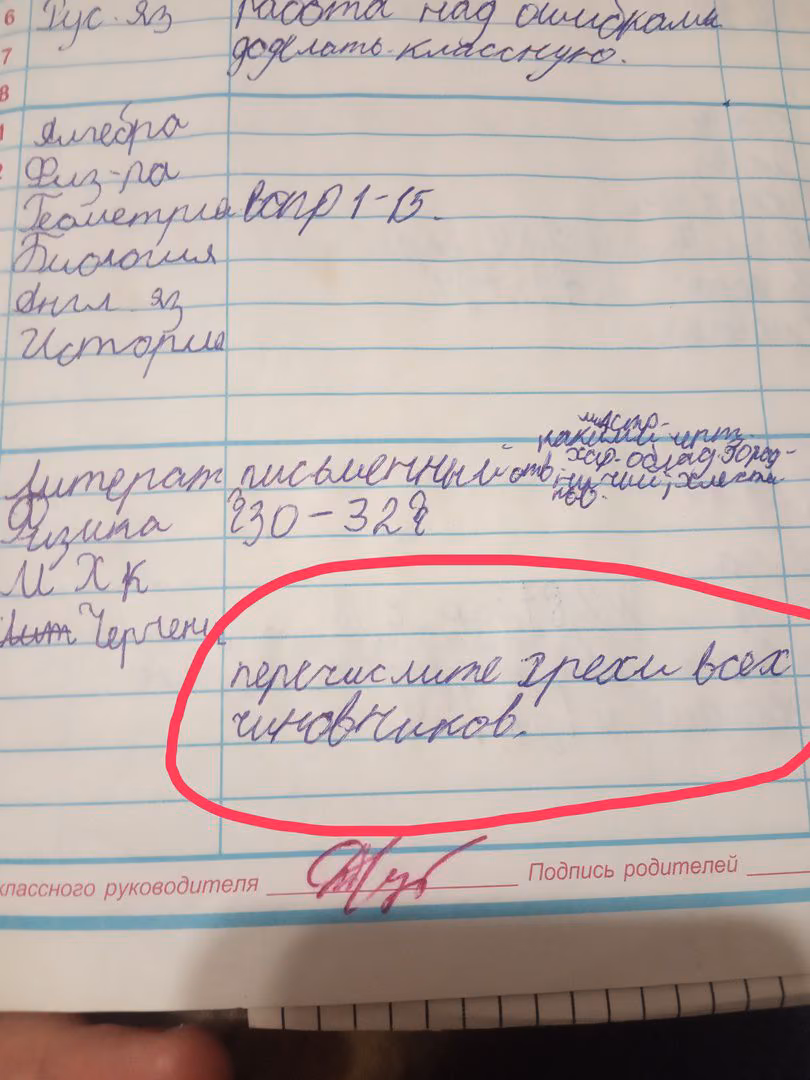 6 Рус. яз Работа над ошибками
7 доделать классную.
8
Алгебра
Физ-ра
Геометрия вопр 1-15.
Биология
Англ яз
История
Литерат письменный отв.
какими черт.
хар. облад. Город-
ничий, Хлеста
ков.
Физика §30-32§
МХК
Лит Черчени
перечислите грехи всех
чиновников.
классного руководителя Подпись родителей